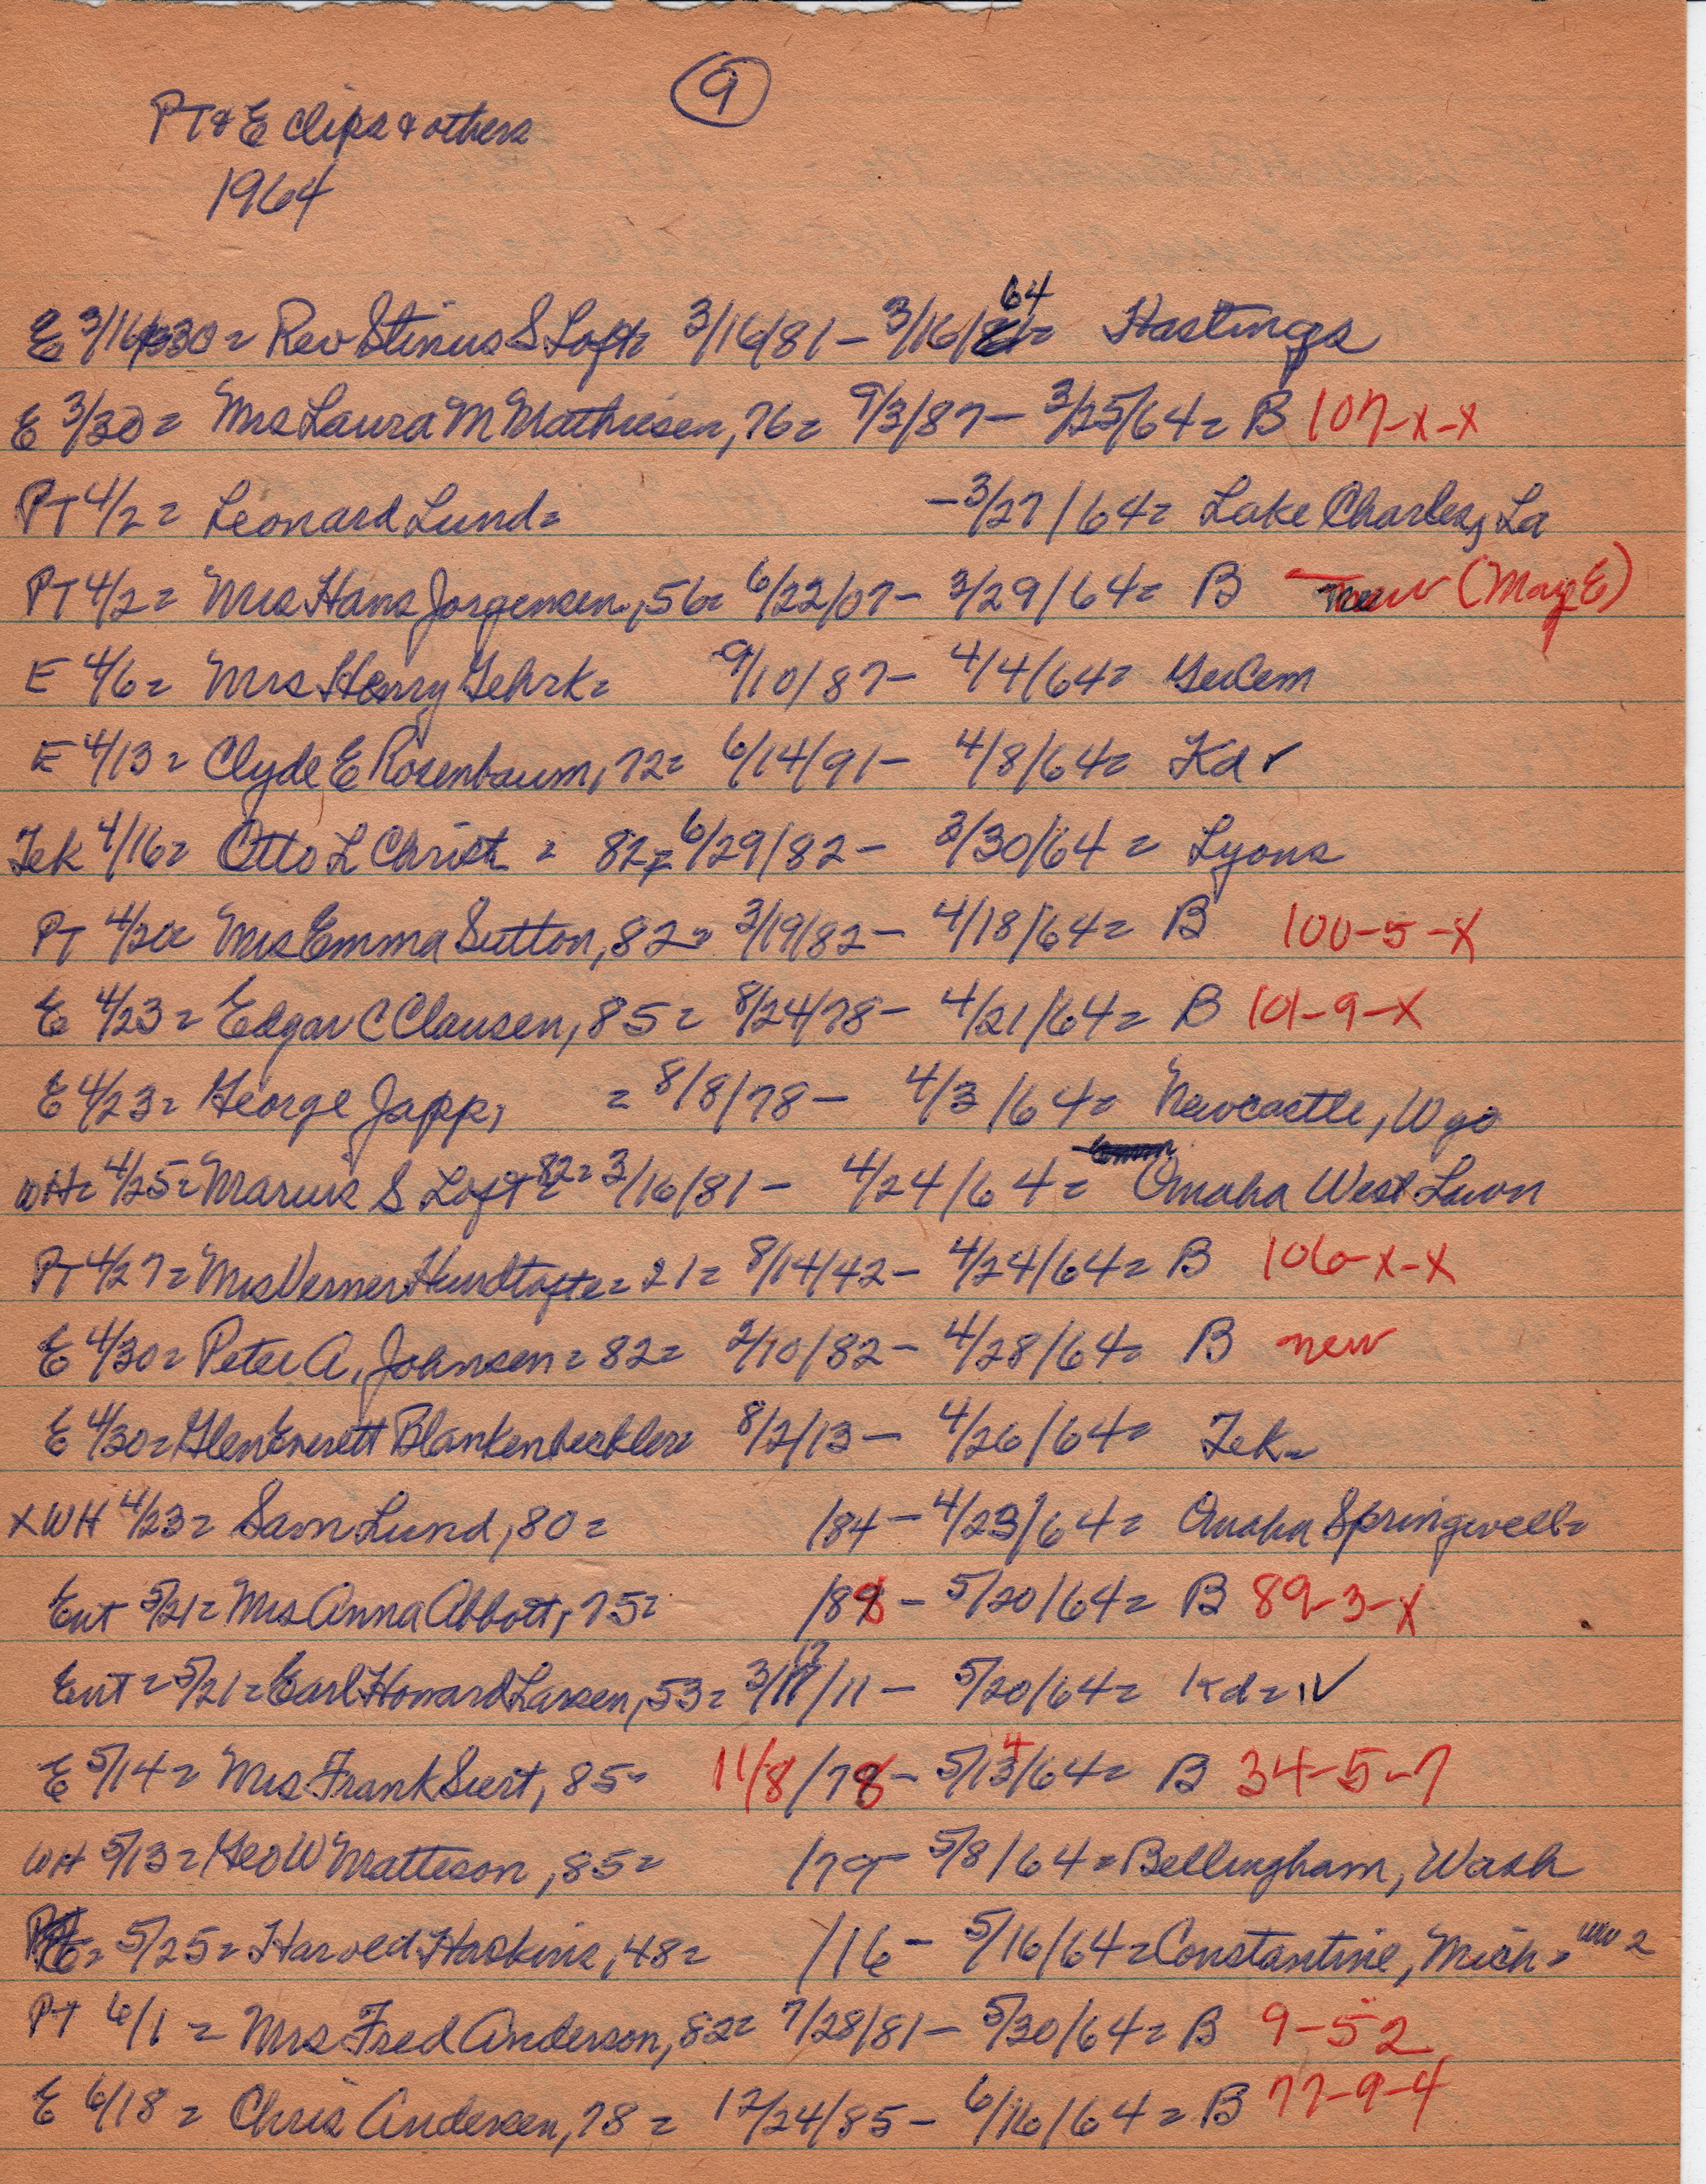 9
PT & E clips & others
1964
E 3/16 & 30 = Rev Stinus S Loft = 3/16/81 - 3/16/64 = Hastings
E 3/30 = Mrs Laura M Mathiesen, 76 = 9/3/87 - 3/25/64 = B 107-x-x
PT 4/2 = Leonard Lund = - 3/27/64 = Lake Charles, La
PT 4/2 = Mrs Hans Jorgensen, 56 = 6/22/07 - 3/29/64 = B new (May E)
E 4/6 = Mrs Henry Gehrk = 9/10/87 - 4/4/64 =
E 4/13 = Clyde E Rosenbaum, 72 = 6/14/91 - 4/8/64 = Kd ✓
Tek 4/16 = Otto L Christ = 82 = 6/29/82 - 3/30/64 = Lyons
PT 4/20 = Mrs Emma Sutton, 82 = 3/19/82 - 4/18/64 = B 100-5-x
E 4/23 = Edgar C Clausen, 85 = 8/24/78 - 4/21/64 = B 101-9-x
E 4/23 = George Japp, = 8/8/78 - 4/3/64 = Newcastle, Wyo
WH = 4/25 = Marius S Loft = 82 = 3/16/81 - 4/24/64 = Omaha West Lawn
PT 4/27 = Mrs Verner Hundtofte = 21 = 8/14/42 - 4/24/64 = B 106-x-x
E 4/30 = Peter A. Johnsen = 82 = 2/10/82 - 4/28/64 = B new
E 4/30 = Glen Everett Blankenbeckler = 8/2/13 - 4/26/64 = Tek =
X WH 4/23 = Sam Lund, 80 = /84 - 4/23/64 = Omaha Springwell =
Ent 5/21 = Mrs Anna Abbott, 75 = /88 - 5/20/64 = B 89-3-x
Ent = 5/21 = Earl Howard Larsen, 53 = 3/17/11 - 5/20/64 = Kd = ✓
E 5/14 = Mrs Frank Siert, 85 = 11/8/78 - 5/14/64 = B 34-5-7
WH 5/13 = Geo W Matteson, 85 = /79 - 5/8/64 = Bellingham, Wash
E = 5/25 = Harold Haskins, 48 = /16 - 5/16/64 = Constantine, Mich = WW 2
PT 6/1 = Mrs Fred Anderson, 82 = 7/28/81 - 5/30/64 = B 9-52
E 6/18 = Chris Andersen, 78 = 12/24/85 - 6/16/64 = B 77-9-4